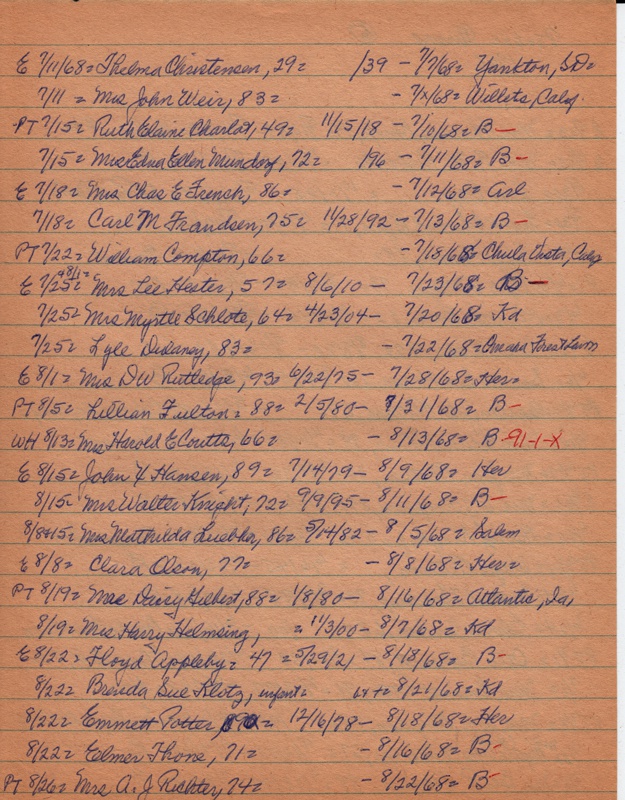 E 7/11/68= Thelma Christensen, 29= /39 - 7/7/68= Yankton, S.D=
7/11 = Mrs John Weir, 83= - 7/ /68= Willets, Calif.
PT 7/15= Ruth Elaine Charlot, 49= 11/15/18 - 7/10/68= B-
7/15= Mrs Edna Ellen Mundorf, 72= /96 - 7/11/68= B-
E 7/18= Mrs Chas E French, 86= - 7/12/68= Arl
7/18= Carl M Frandsen, 75= 11/28/92 - 7/13/68= B-
PT 7/22= William Compton, 66= - 7/18/68 Chula Vista, Calif
E 7/25= 8/1= Mrs Lee Hester, 57= 8/6/10 - 7/23/68= B-
7/25= Mrs Myrtle Schlote, 64= 4/23/04- 7/20/68= Kd
7/25= Lyle Dulaney, 83= - 7/22/68= Omaha Forest Lawn
E 8/1= Mrs DW Rutledge, 93= 6/22/75- 7/28/68= Her=
PT 8/5= Lillian Fulton= 88= 2/5/80- 7/31/68= B-
WH 8/13= Mrs Harold E Coutts, 66= - 8/13/68= B-91-1-X
E 8/15= John Y Hansen, 89= 7/14/79- 8/9/68= Her
8/15- Mrs Walter Knight, 72= 9/9/95- 8/11/68= B-
8/8+15= Mrs Mathilda Luebker, 86= 5/14/82- 8/5/68= Salem
E 8/8= Clara Olson, 77= - 8/8/68= Her=
PT 8/19= Mrs Daisy Gilbert, 88= 1/8/80- 8/16/68= Atlantic, Ia,
8/19= Mrs Harry Helmsing, = 11/3/00- 8/7/68= Kd
E 8/22= Floyd Appleby= 47 = 5/29/21 - 8/18/68= B-
8/22= Brenda Sue Klotz, infant= 8/21/68= Kd
8/22= Emmett Potter, 89= 12/16/78- 8/18/68= Her
8/22= Elmer Thone, 71= - 8/16/68= B-
PT 8/26= Mrs A. J Richter, 74= - 8/22/68= B-